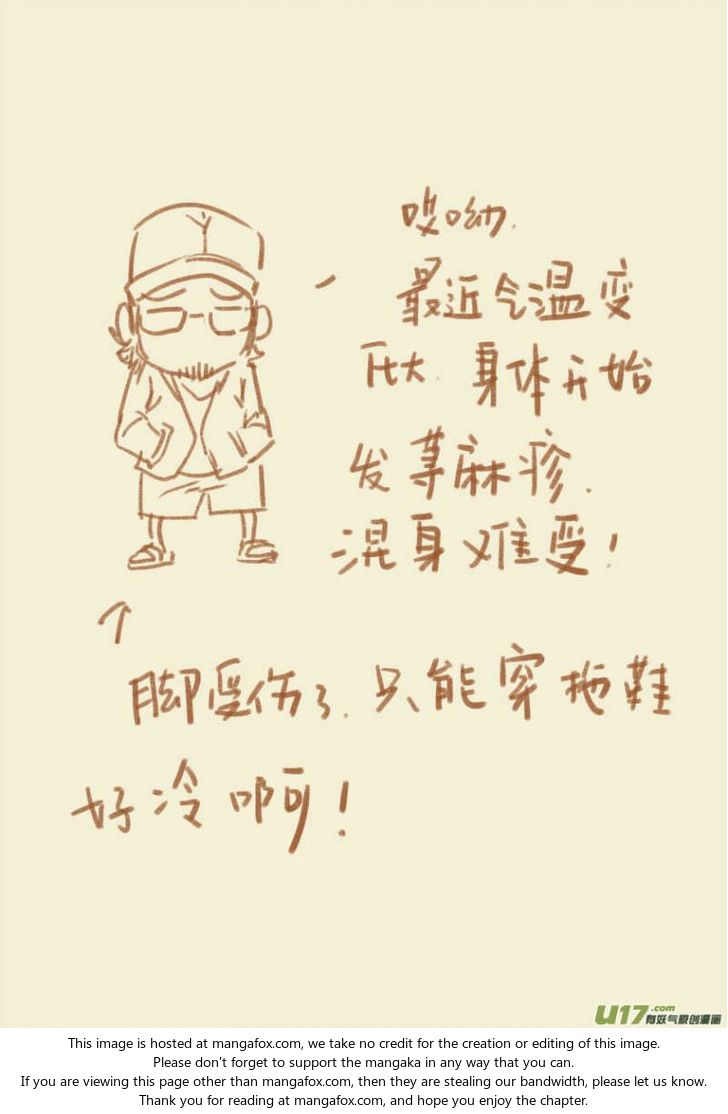 哎呦.
最近气温变
化大.身体开始
发荨麻疹.
混身难受!
脚受伤了.只能穿拖鞋
好冷啊!
U17.com
有妖气原创漫画
This image is hosted at mangafox.com, we take no credit for the creation or editing of this image.
Please don't forget to support the mangaka in any way that you can.
If you are viewing this page other than mangafox.com, then they are stealing our bandwidth, please let us know.
Thank you for reading at mangafox.com, and hope you enjoy the chapter.